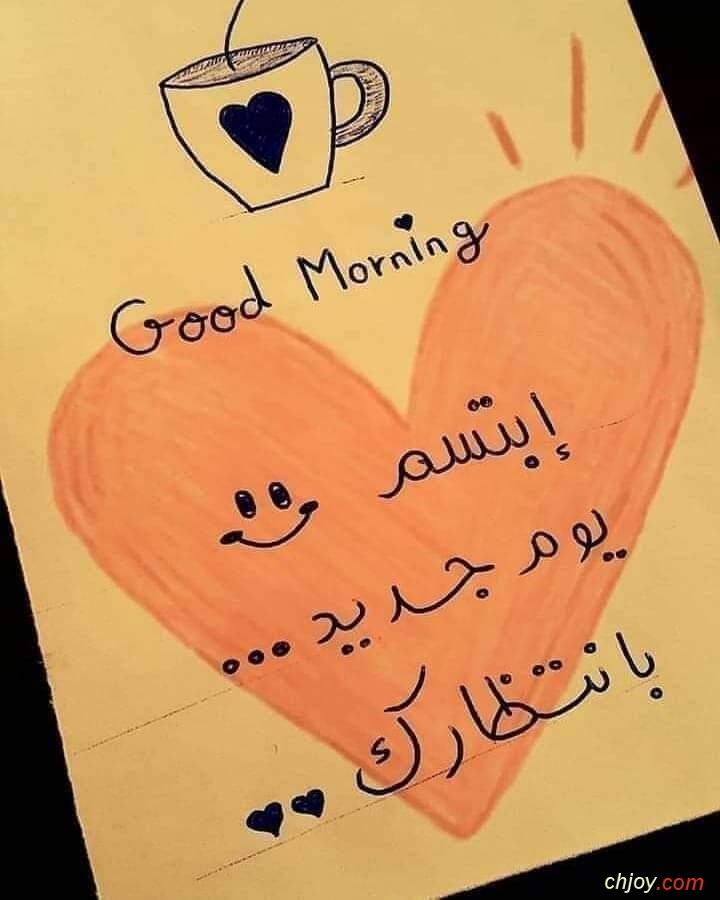 Good Morning
إبتسم
يوم جديد...
بانتظارك
chjoy.com